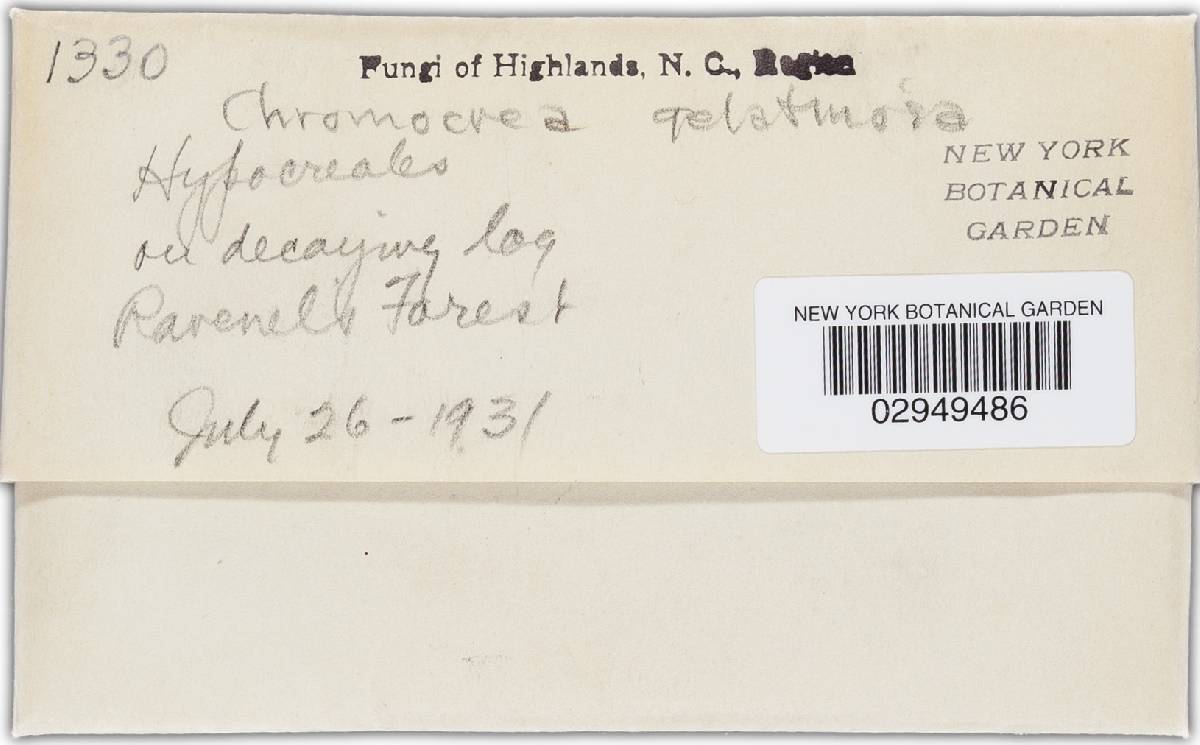 1330
Fungi of Highlands, N. C., Region
Chromocrea gelatinosa
Hypocreales
on decaying log
Ravenel's Forest
July 26 - 1931
NEW YORK
BOTANICAL
GARDEN
NEW YORK BOTANICAL GARDEN
02949486